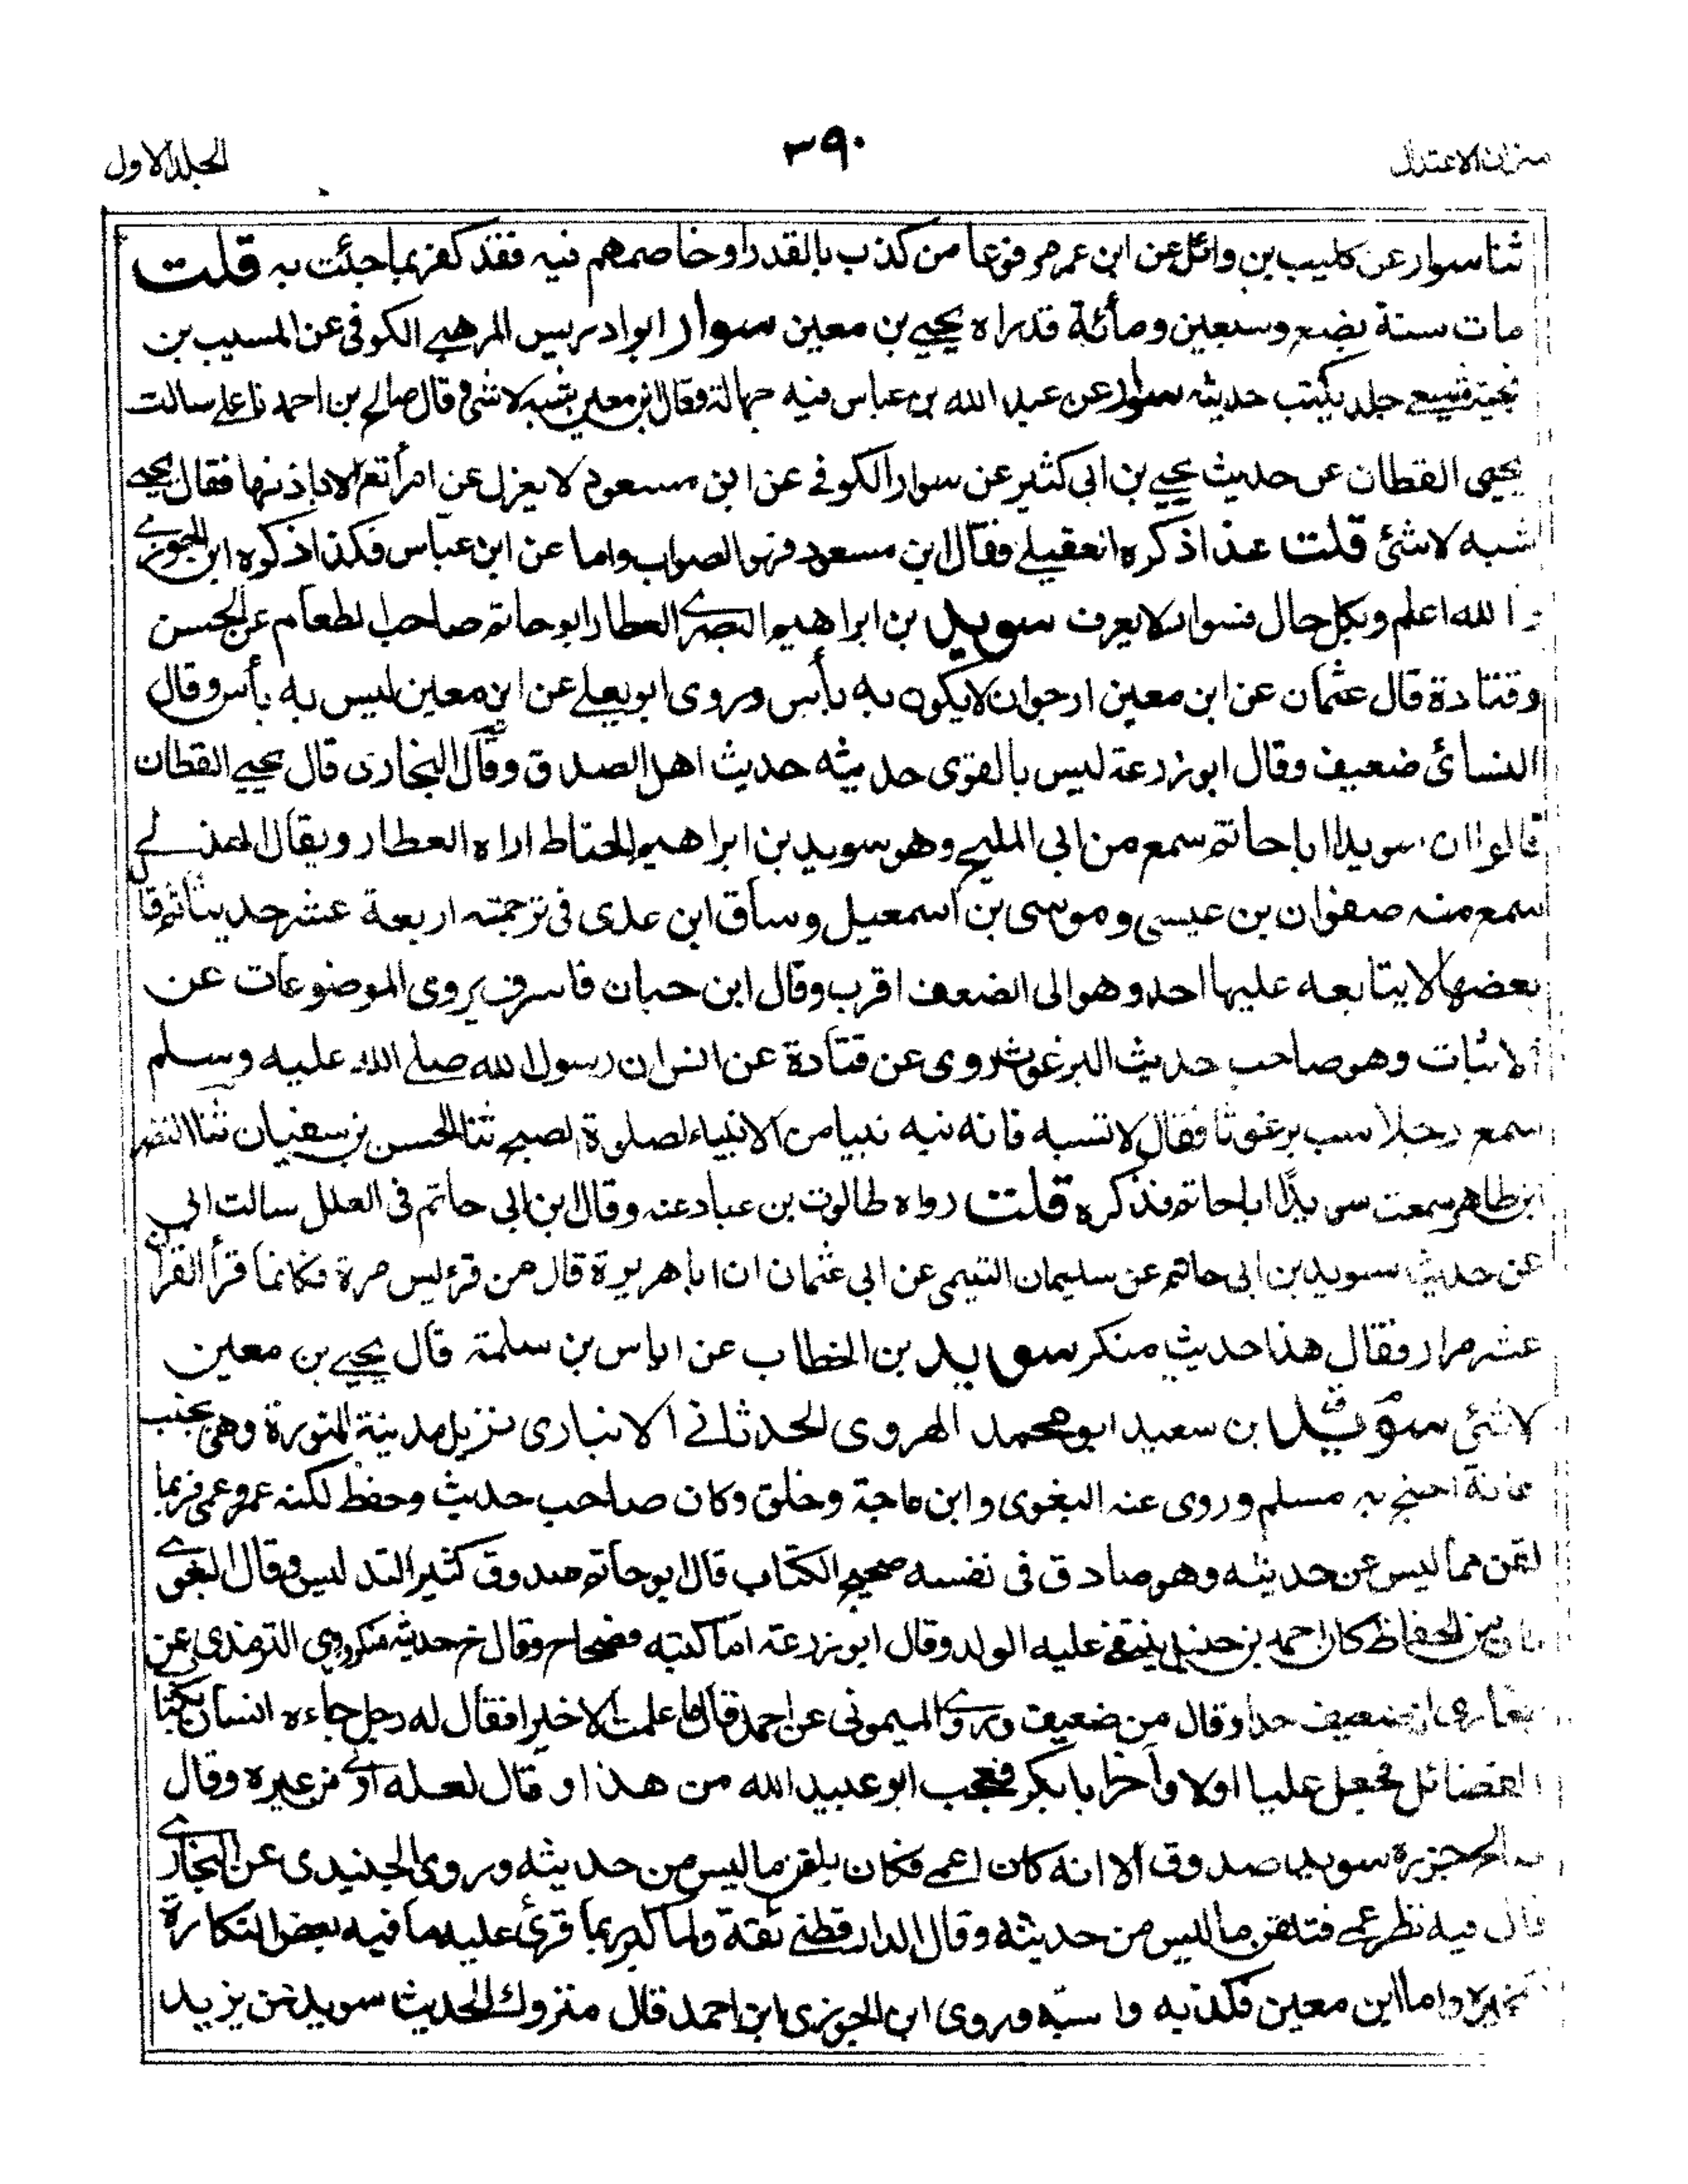 ميزان الاعتدال
٣٩٠
الجلد الاول
ثنا سوار عن كليب بن وائل عن ابن عمر مرفوعا من كذب بالقدر او خاصمهم فيه فقد كفر بما جئت به قلت
مات سنة بضع وسبعين ومأئة قد راه يحيى بن معين سوار ابو ادريس المرهبى الكوفى عن المسيب بن
نجبة شيعى جلد يكتب حديثه سوار عن عبد الله بن عباس فيه جهالة وقال ابن معين يشبه لا شئ وقال صالح بن احمد نا على سالت
يحيى القطان عن حديث يحيى بن ابى كثير عن سوار الكوفى عن ابن مسعود لا يعزل عن امرأته الا باذنها فقال يحيى
شبه لا شئ قلت هذا ذكره العقيلى فقال ابن مسعود فهو الصواب واما عن ابن عباس فكذا ذكره ابن الجوزى
والله اعلم وبكل حال فسوار لا يعرف سويد بن ابراهيم البصرى العطار ابو حاتم صاحب الطعام عن الحسن
وقتادة قال عثمان عن ابن معين ارجو ان لا يكون به بأس وروى ابو يعلى عن ابن معين ليس به بأس وقال
النسائى ضعيف وقال ابو زرعة ليس بالقوى حديثه حديث اهل الصدق وقال البخارى قال يحيى القطان
قالوا ان سويدا ابا حاتم سمع من ابى المليح وهو سويد بن ابراهيم الحناط اراه العطار ويقال الهذلى
سمع منه صفوان بن عيسى وموسى بن اسمعيل وساق ابن عدى فى ترجمته اربعة عشر حديثا ثم قال
بعضها لا يتابعه عليها احد وهو الى الضعف اقرب وقال ابن حبان فاسرف يروى الموضوعات عن
الاثبات وهو صاحب حديث البرغوث روى عن قتادة عن انس ان رسول الله صلى الله عليه وسلم
سمع رجلا سب برغوثا فقال لا تسبه فانه نبه نبيا من الانبياء لصلوة الصبح ثنا الحسن بن سفيان ثنا النضر
ابن طاهر سمعت سويدًا ابا حاتم فذكره قلت رواه طالوت بن عباد عنه وقال ابن ابى حاتم فى العلل سالت ابى
عن حديث سويد بن ابى حاتم عن سليمان التيمى عن ابى عثمان ان ابا هريرة قال من قرء ليس مرة فكانما قرأ القران
عشر مرار فقال هذا حديث منكر سويد بن الخطاب عن اياس بن سلمة قال يحيى بن معين
لا شئى سويد ابن سعيد ابو محمد الهروى الحدثانى الانبارى نزيل مدينة النورة وهى بجنب
عانة احتج به مسلم وروى عنه البغوى وابن ماجة وخلق وكان صاحب حديث وحفظ لكنه عمر وعمى فربما
لقن مما ليس عن حديثه وهو صادق فى نفسه صحيح الكتاب قال ابو حاتم صدوق كثير التدليس وقال البغوى
كان من الحفاظ كان احمد بن حنبل ينتقى عليه الولد وقال ابو زرعة اما كتبه فصحاح وقال خ حديثه منكر وروى الترمذى عن
البخارى انه ضعيف جدا وقال من ضعيف وروى الميمونى عن احمد قال ما علمت الا خيرا فقال له رجل جاءه انسان بكتاب
الفضائل فجعل عليا اولا وأخر ابا بكر فعجب ابو عبيد الله من هذا وقال لعله اوتى من غيره وقال
صالح جزرة سويد صدوق الا انه كان اعمى فكان يلقن ما ليس من حديثه وروى الجنيدى عن البخارى
قال فيه نظر عمى فتلقن ما ليس من حديثه وقال الدارقطنى ثقة ولما كبر ربما قرئ عليه ما فيه بعض النكارة
فيجيزه واما ابن معين فكذبه وسبّه وروى ابن الجوزى ان احمد قال متروك الحديث سويد عن يزيد